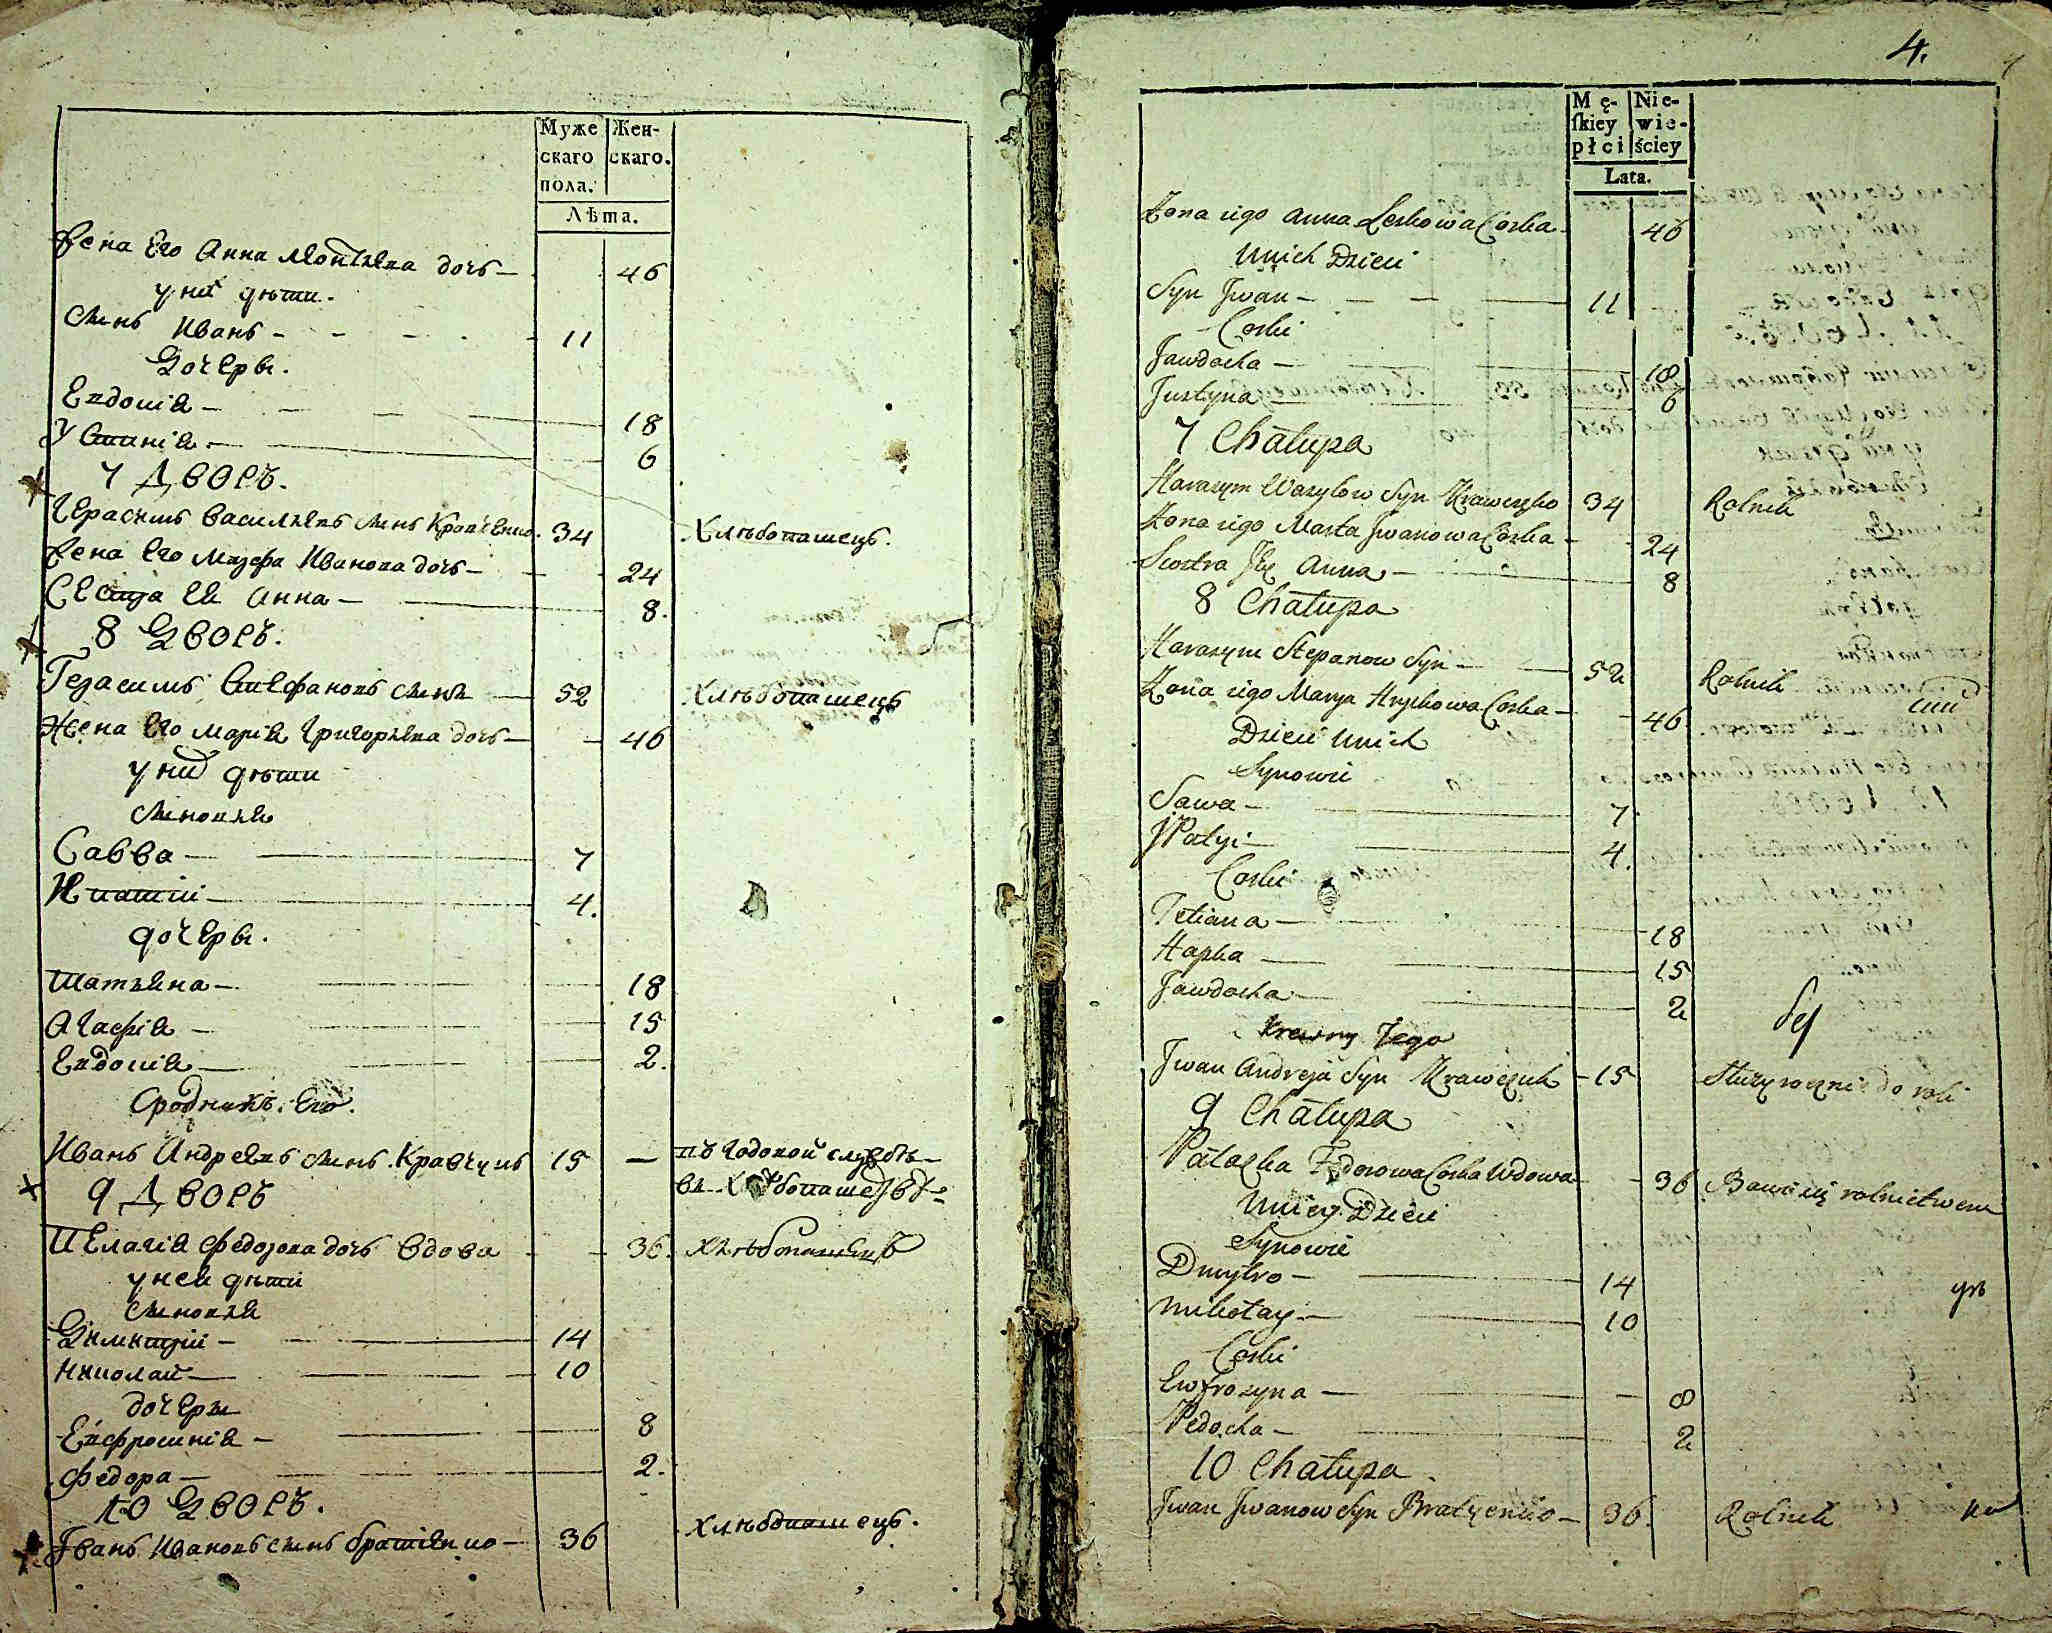 Муже
скаго
пола.
Жен-
скаго.
Лѣта.
Жена Его Анна Леонтьева дочь — 46
у них дѣти.
Сынъ Иванъ — 11
Дочеры.
Евдокія — 18
Устинія — 6
7 Дворъ.
Герасимъ Васильевъ сынъ Кравченко. 34 Хлѣбопашецъ.
Жена Его Марфа Иванова дочь — 24
Сестра Ея Анна — 8.
8 Дворъ.
Герасимъ Стефановъ сынъ — 52 Хлѣбопашецъ
Жена Его Марія Григорьева дочь — 46
у них дѣти
Сыновья
Савва — 7
Ипатій — 4.
дочеры.
Татьяна — 18
Агафія — 15
Евдокія — 2.
Сродникъ Его.
Иванъ Андреевъ сынъ Кравчукъ 15 — въ годовой службѣ
въ хлѣбопашествѣ
9 Дворъ
Пелагія Федорова дочь вдова — 36. Хлѣбопашецъ
у неи дѣти
Сыновья
Димитрій — 14
Николай — 10
дочеры
Евфросинія — 8
Федора — 2.
10 Дворъ.
Іванъ Ивановъ сынъ Братченко — 36 Хлѣбопашецъ.
4.
Mę-
ſkiey
płci
Nie-
wie-
ściey
Lata.
Żona iego Anna Leskowa Corka 46
Unich Dzieci
Syn Jwan — 11
Corki
Jawdocha — 18
Justyna — 6
7 Chałupa
Harasym Wasylow Syn Krawczko 34 Rolnik
Żona iego Marta Jwanowa Corka — 24
Siostra Jey Anna — 8
8 Chałupa
Harasym Stepanow Syn — 52 Rolnik
Żona iego Marya Hryckowa Corka — 46
Dzieci Unich
Synowie
Sawa — 7
JPatyi — 4.
Corki
Tetiana — 18
Hapka — 15
Jawdocha — 2
Krewny Tego
Jwan Andreja Syn Krawczuk — 15 Służy rocznie do roli
9 Chałupa
Pałaszka Fedorowa Corka Wdowa — 36 Bawi się rolnictwem
Uniey Dzieci
Synowie
Dmytro — 14
Mikołay — 10
Corki
Ewfrozyna — 8
Fedocha — 2
10 Chałupa
Jwan Jwanow Syn Bratczenko — 36. Rolnik